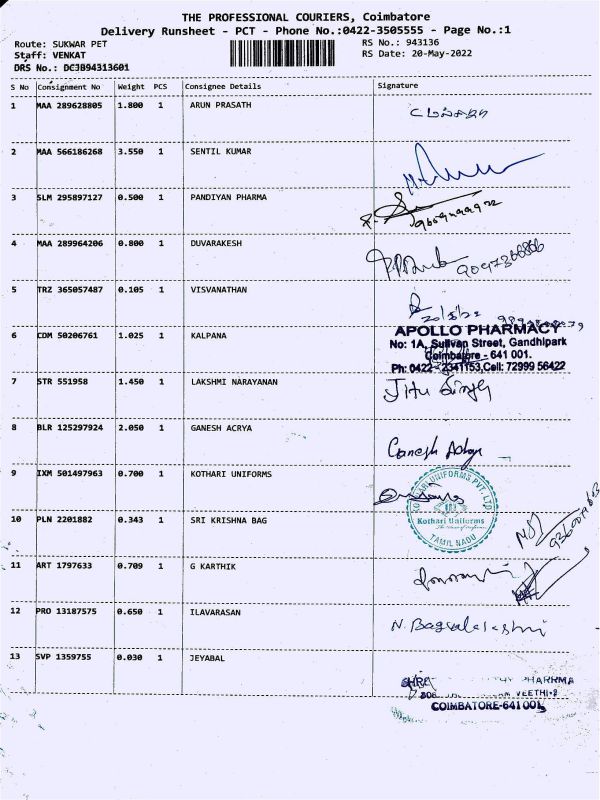 THE PROFESSIONAL COURIERS, Coimbatore
Delivery Runsheet - PCT - Phone No.:0422-3505555 - Page No.:1
Route: SUKWAR PET RS No.: 943136
Staff: VENKAT RS Date: 20-May-2022
DRS No.: DCJB94313601
S No Consignment No Weight PCS Consignee Details Signature
1 MAA 289628805 1.800 1 ARUN PRASATH
2 MAA 566186268 3.550 1 SENTIL KUMAR
3 SLM 295897127 0.500 1 PANDIYAN PHARMA
4 MAA 289964206 0.800 1 DUVARAKESH
5 TRZ 365057487 0.105 1 VISVANATHAN
20/5/22
6 CDM 50206761 1.025 1 KALPANA
APOLLO PHARMACY
No: 1A, Sullivan Street, Gandhipark
Coimbatore - 641 001.
Ph: 0422 - 2341153, Cell: 72999 56422
7 STR 551958 1.450 1 LAKSHMI NARAYANAN
Jitu Singh
8 BLR 125297924 2.050 1 GANESH ACRYA
Ganesh
9 IXM 501497963 0.700 1 KOTHARI UNIFORMS
KOTHARI UNIFORMS PVT. LTD
Kothari Uniforms
TAMIL NADU
10 PLN 2201882 0.343 1 SRI KRISHNA BAG
11 ART 1797633 0.709 1 G KARTHIK
12 PRO 13187575 0.650 1 ILAVARASAN
N.
13 SVP 1359755 0.030 1 JEYABAL
PHARRMA
VEETHI-2
COIMBATORE-641 001